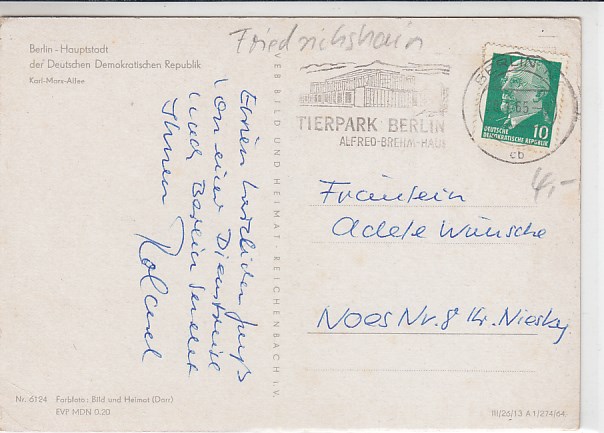 Friedrichshain
Berlin - Hauptstadt
der Deutschen Demokratischen Republik
Karl-Marx-Allee
Einen herzlichen Gruß
von einer Dienstreise
nach Berlin sendet
Ihnen Roland
VEB BILD UND HEIMAT · REICHENBACH i. V.
TIERPARK BERLIN
ALFRED-BREHM-HAUS
BERLIN
cb
DEUTSCHE
DEMOKRATISCHE REPUBLIK
10
4,-
Fräulein
Adele Wünsche
Noes Nr. 8 Kr. Niesky
Nr. 6124 Farbfoto: Bild und Heimat (Darr)
EVP MDN 0.20
III/26/13 A 1/274/64